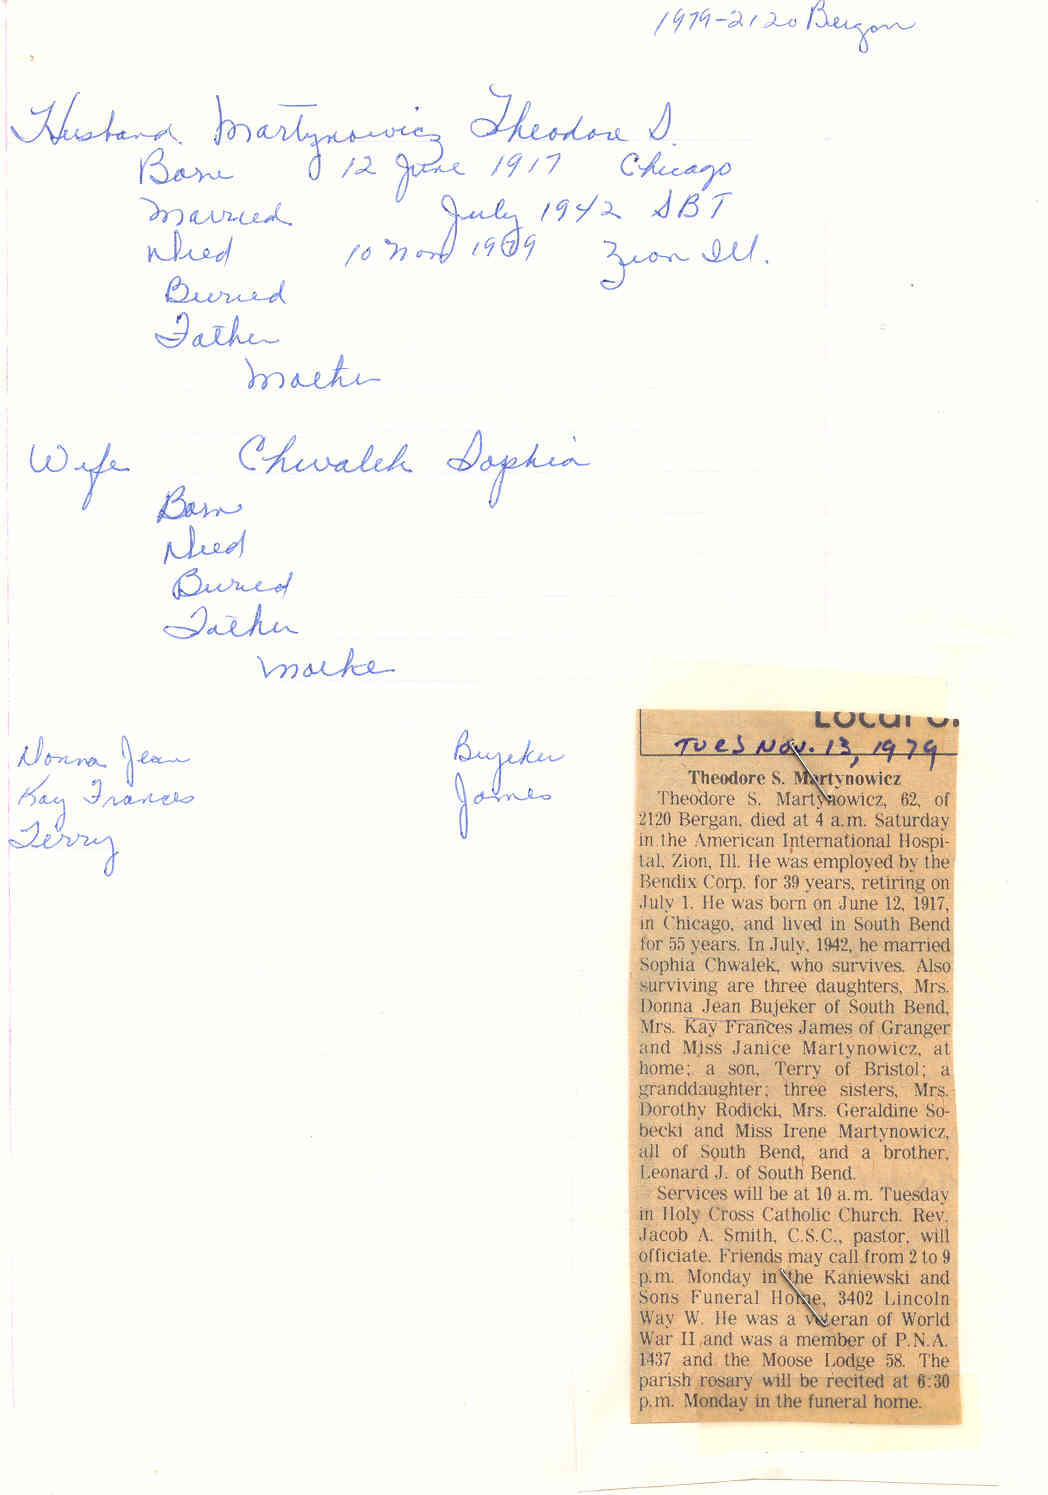 1979-2120 Bergan
Husband Martynowicz Theodore S.
Born 12 June 1917 Chicago
Married July 1942 SBT
Died 10 Nov 1979 Zion Ill.
Buried
Father
Mother
Wife Chwalek Sophia
Born
Died
Buried
Father
Mother
Donna Jean Bujeker
Kay Frances James
Terry
Tues Nov. 13, 1979
Theodore S. Martynowicz
Theodore S. Martynowicz, 62, of
2120 Bergan, died at 4 a.m. Saturday
in the American International Hospi-
tal, Zion, Ill. He was employed by the
Bendix Corp. for 39 years, retiring on
July 1. He was born on June 12, 1917,
in Chicago, and lived in South Bend
for 55 years. In July, 1942, he married
Sophia Chwalek, who survives. Also
surviving are three daughters, Mrs.
Donna Jean Bujeker of South Bend,
Mrs. Kay Frances James of Granger
and Miss Janice Martynowicz, at
home; a son, Terry of Bristol; a
granddaughter; three sisters, Mrs.
Dorothy Rodicki, Mrs. Geraldine So-
becki and Miss Irene Martynowicz,
all of South Bend, and a brother,
Leonard J. of South Bend.
Services will be at 10 a.m. Tuesday
in Holy Cross Catholic Church. Rev.
Jacob A. Smith, C.S.C., pastor, will
officiate. Friends may call from 2 to 9
p.m. Monday in the Kaniewski and
Sons Funeral Home, 3402 Lincoln
Way W. He was a veteran of World
War II and was a member of P.N.A.
1437 and the Moose Lodge 58. The
parish rosary will be recited at 6:30
p.m. Monday in the funeral home.